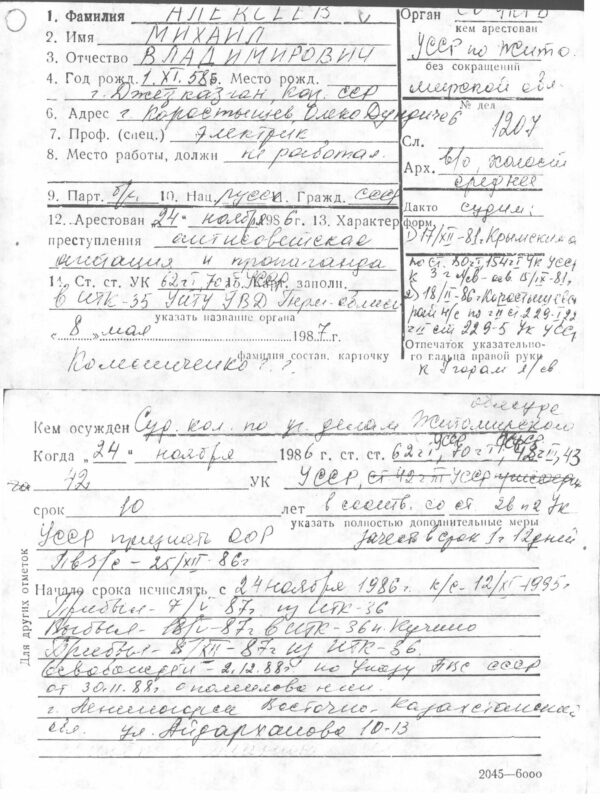 1. Фамилия АЛЕКСЕЕВ
2. Имя МИХАИЛ
3. Отчество ВЛАДИМИРОВИЧ
4. Год рожд. 1. XI. 58 5. Место рожд.
г. Джезказган, Каз. ССР
6. Адрес г. Коростышев,
7. Проф. (спец.) электрик
8. Место работы, должн не работал
9. Парт. б/п 10. Нац. русск 11. Гражд. СССР
12. Арестован "24" ноября 1986 г. 13. Характер
преступления антисоветская
агитация и пропаганда
Ст. ст. УК 62 ч I, 70 заполн.
в ИТК-35 УИТУ УВД Перм. области
указать название органа
"8" мая 1987 г.
фамилия состав. карточку
Орган
кем арестован
УССР по Жито
без сокращений
мирской обл.
№ дел
1207
Сл.
Арх. в/о, холост
среднее
Дакто судим:
форм.
1) 17/XII-81г. Крымским о
2) 18/II-86г. Коростышевск
рай н/с по ч II ст 229-1, 92
ч II ст 229-5 УК УССР
Отпечаток указательно-
го пальца правой руки
к 4 годам л/св
облсуда
Кем осужден Суд. кол. по уг. делам Житомирского
Когда "24" ноября 1986 г. ст. ст. 62 ч I, 70 ч I, 43
42 УК УССР, УССР
срок 10 лет в соотв. со ст 26 п 2 УК
указать полностью дополнительные меры
УССР признать ООР зачесть в срок 1 г 12 дней
Пв З/с - 25/XII-86г
Для других отметок
Начало срока исчислять с 24 ноября 1986 г. к/с - 12/XI-1995г
Прибыл - 7/V-87г из ИТК-36
Выбыл - 18/V-87г в ИТК-36 п. Кучино
Прибыл - 8/XII-87г из ИТК-36.
Освобожден - 2.12.88г по Указу ПВС СССР
от 30.11.88г о помиловании.
г. Лениногорск Восточно-Казахстанской
обл. ул. Айдарханова 10-13
2045—6000